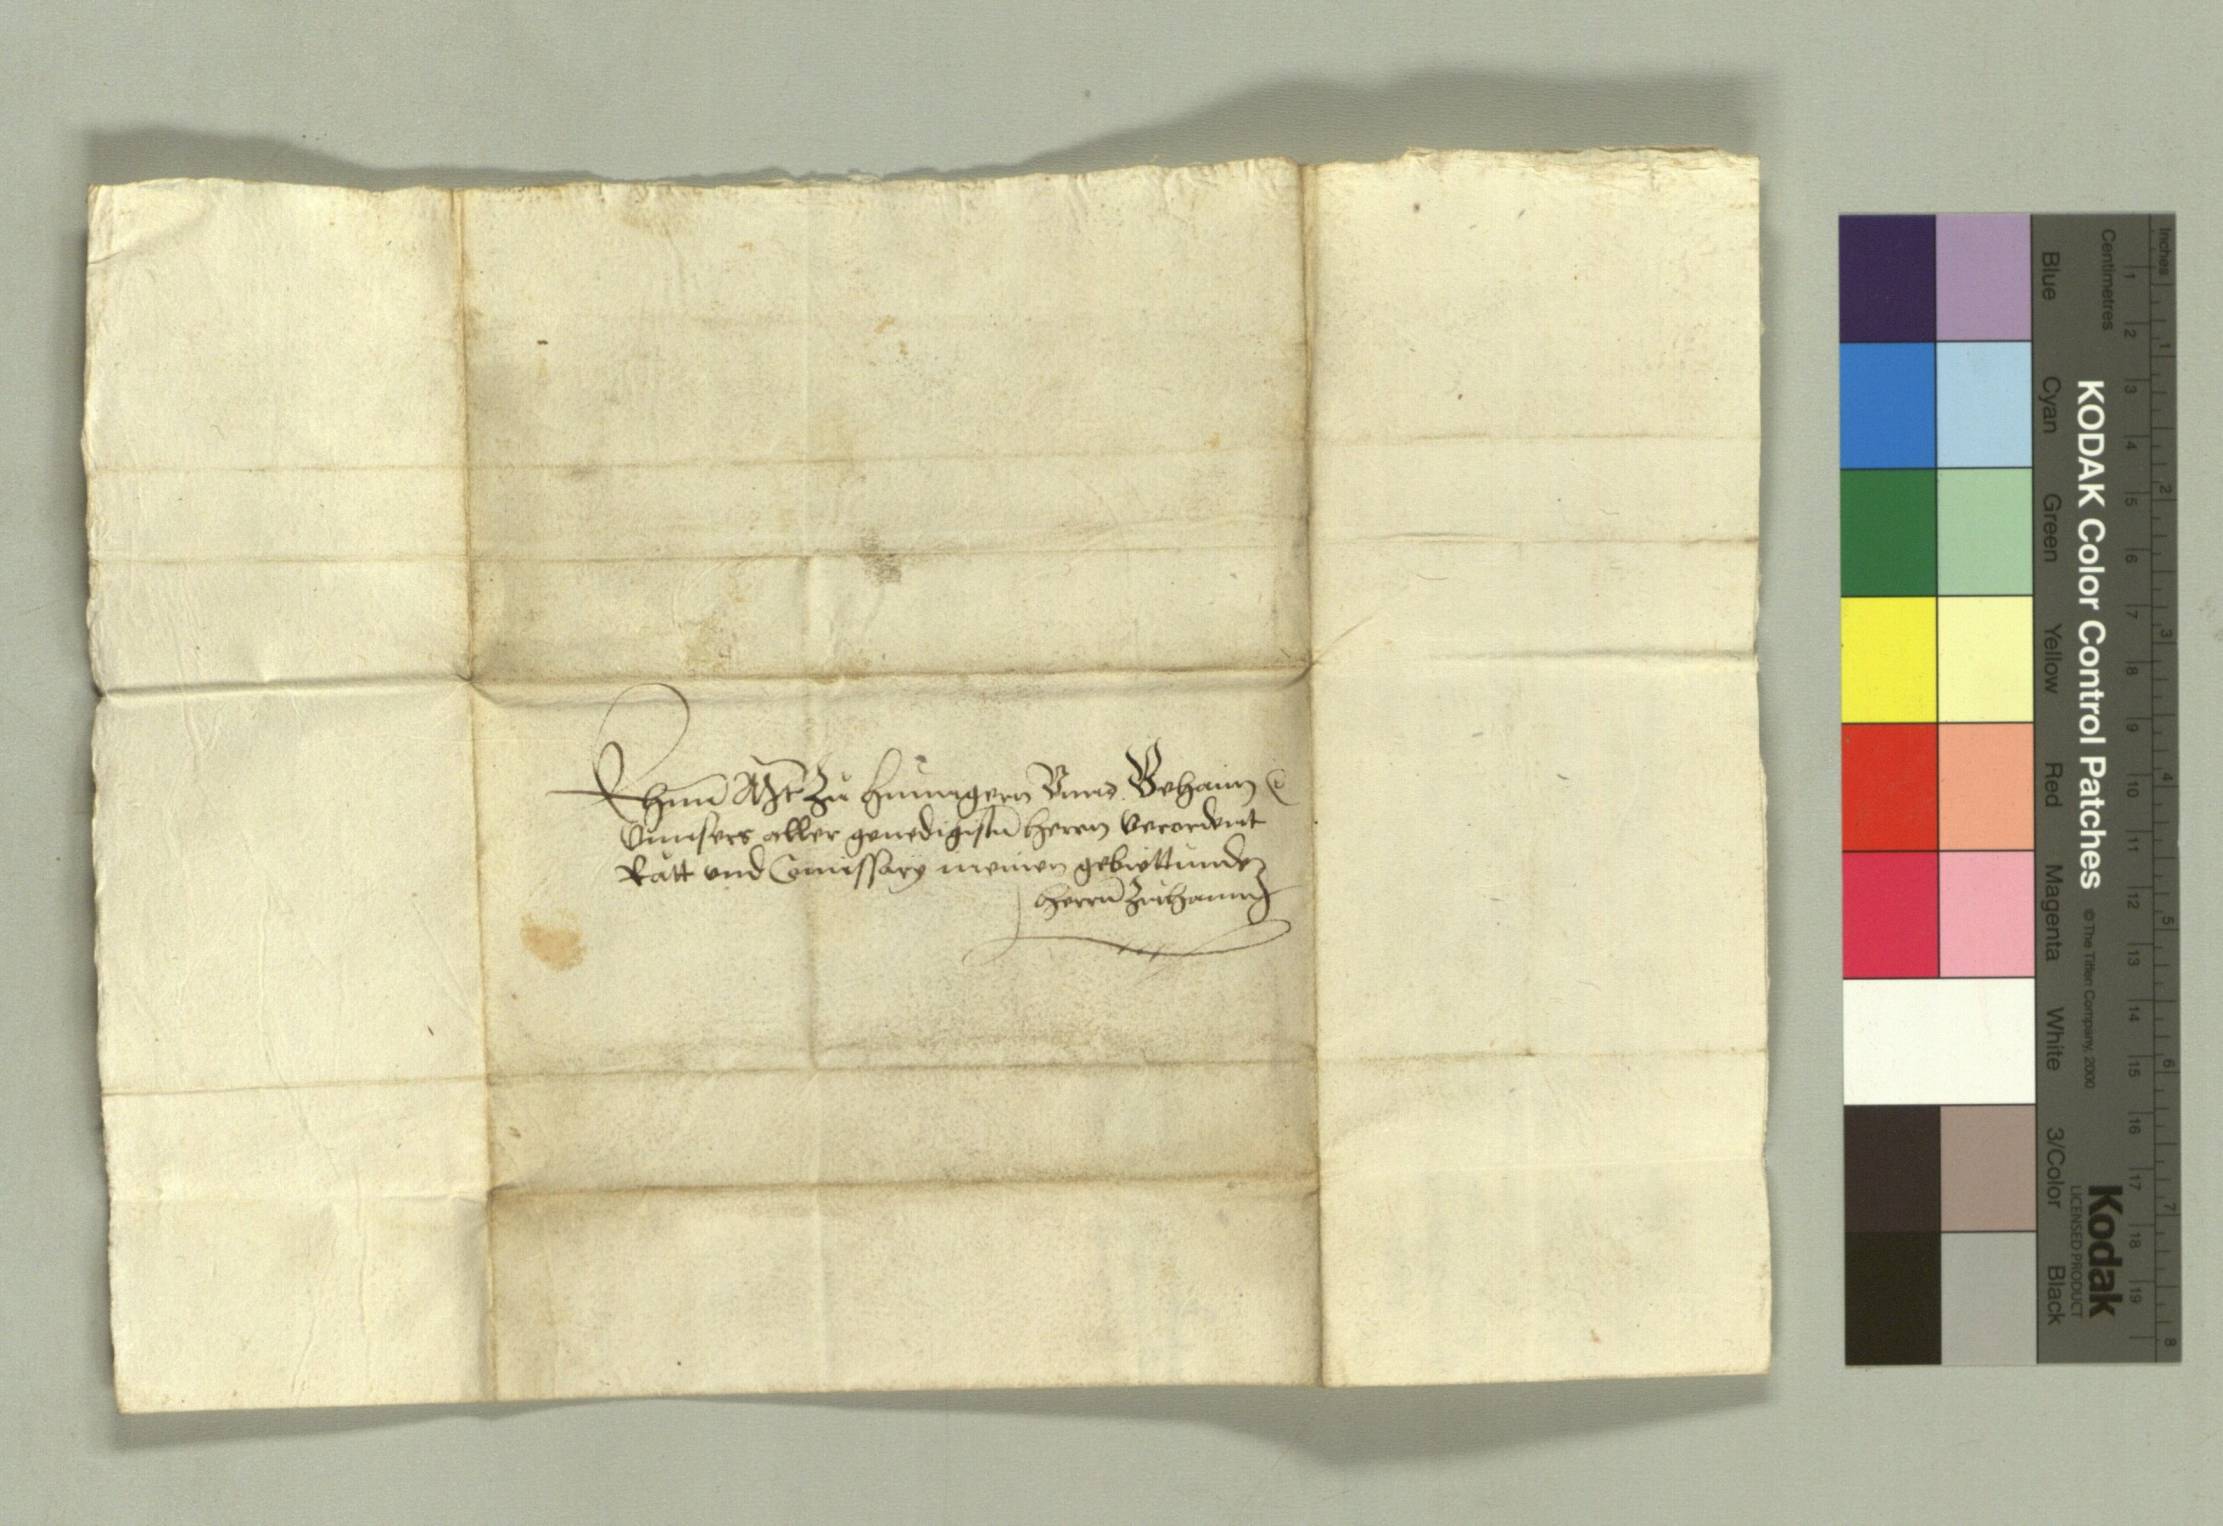 Khün Mt zu hunngern Vnnd Behaim &
Vnnsers aller genedigistn herrn verordent
Rätt vnd Comissary meinen gebiettunden
herrn zuhannden
Blue
Cyan
Green
Yellow
Red
Magenta
White
3/Color
Black
KODAK Color Control Patches
© The Tiffen Company, 2000
Kodak
LICENSED PRODUCT
Centimetres
1 2 3 4 5 6 7 8 9 10 11 12 13 14 15 16 17 18 19
Inches
1 2 3 4 5 6 7 8